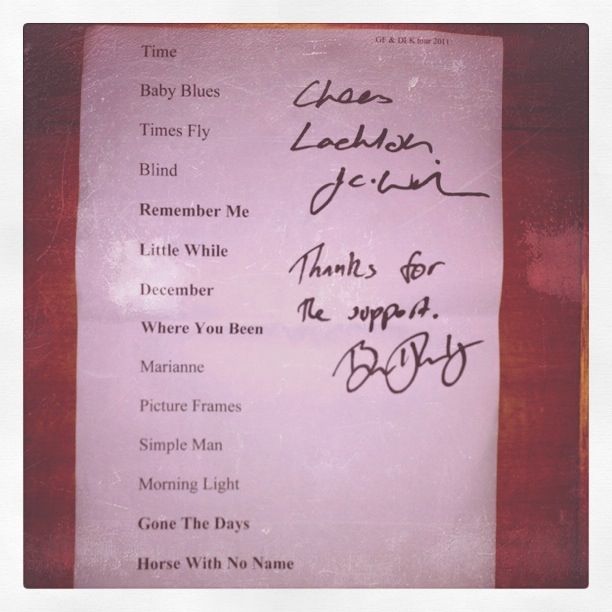 GF & DLK tour 2011
Time
Baby Blues
Times Fly
Blind
Remember Me
Little While
December
Where You Been
Marianne
Picture Frames
Simple Man
Morning Light
Gone The Days
Horse With No Name
Cheers
Lachlan.
Thanks for
the support.